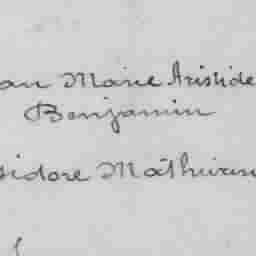 an Marie Aristide
Benjamin
sidore Mathurin